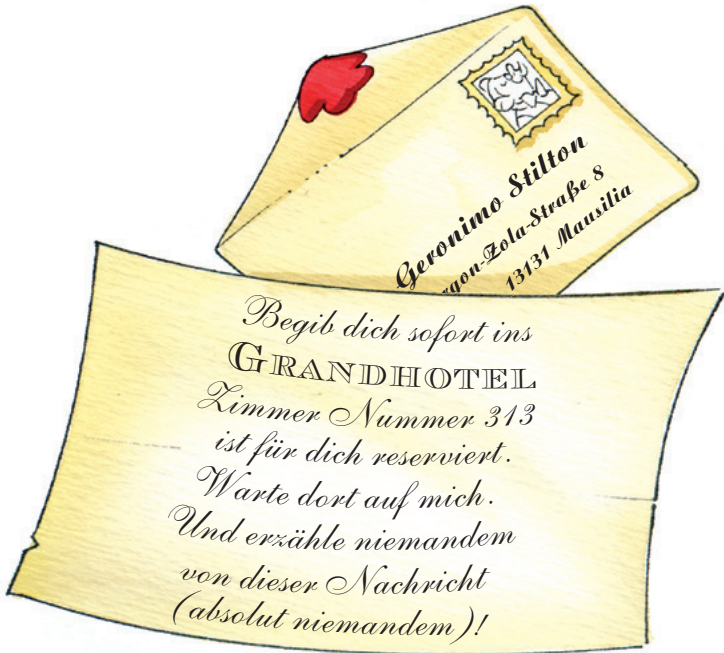 Geronimo Stilton
8
13131 Mausilia
Begib dich sofort ins
GRANDHOTEL
Zimmer Nummer 313
ist für dich reserviert.
Warte dort auf mich.
Und erzähle niemandem
von dieser Nachricht
(absolut niemandem)!